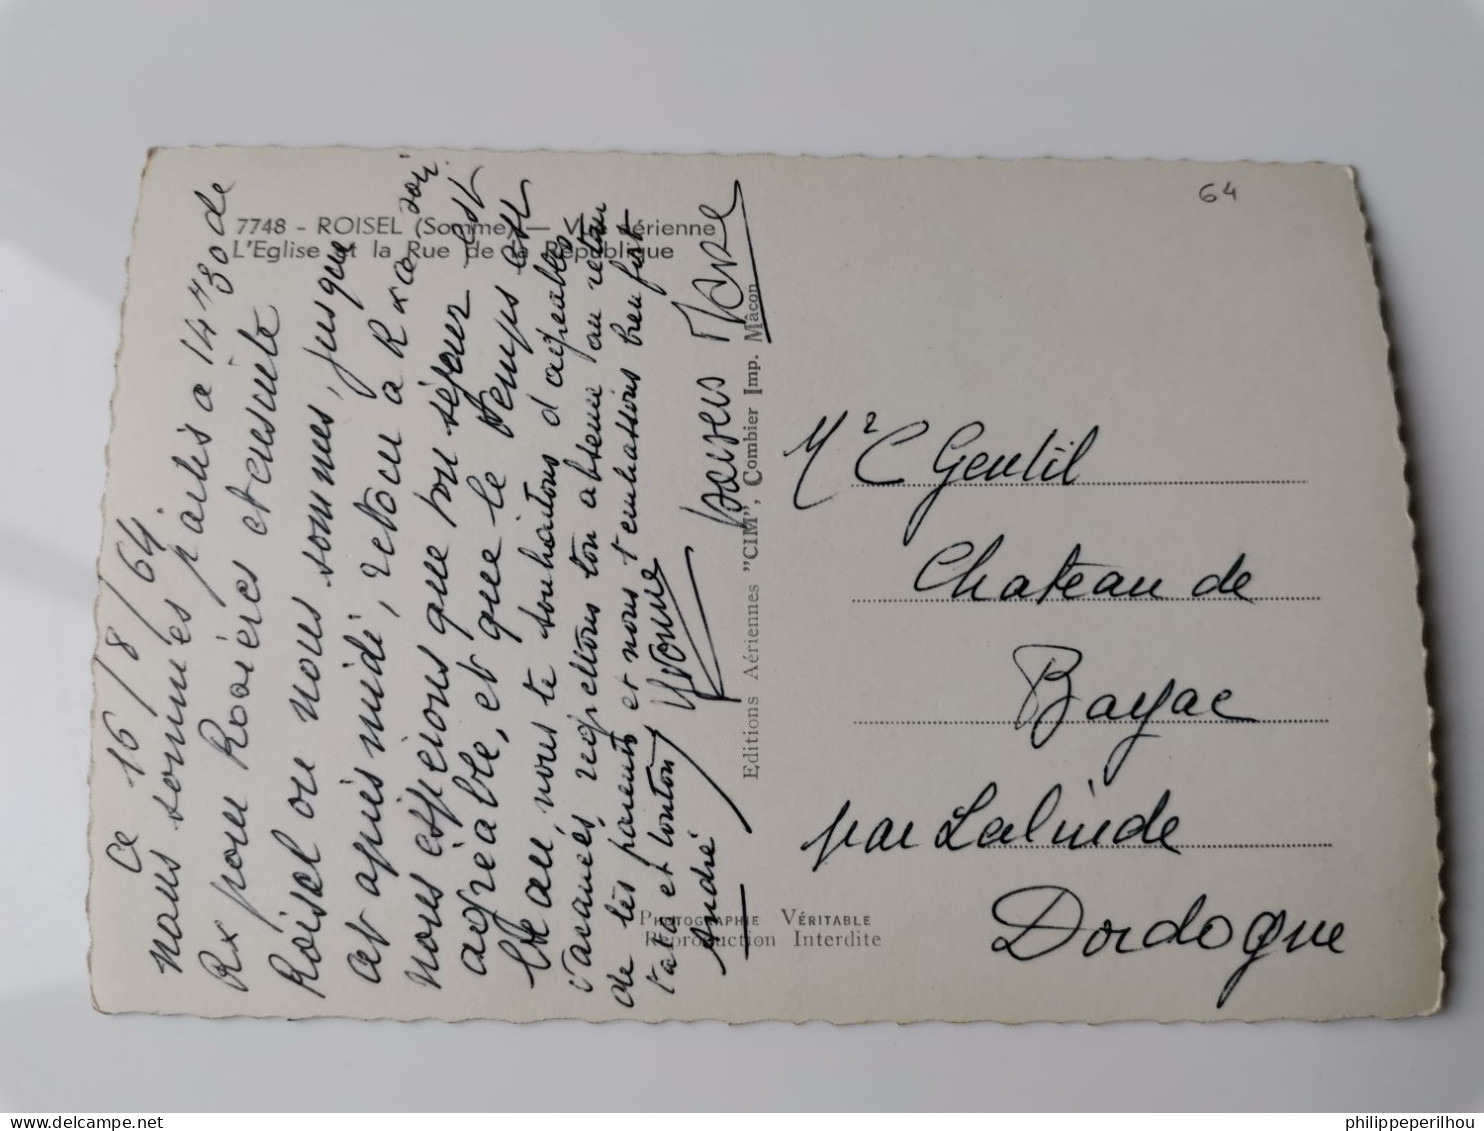 64
7748 - ROISEL (Somme) — Vue aérienne
L'Eglise et la Rue de la République
Ce 16/8/64
nous sommes partis a 14H30 de
Rx pour Rosières et ensuite
Roisel ou nous sommes, jusque
et après midi, retour a Rx ce soir
nous espérons que ton séjour est
agréable, et que le temps est
beau, nous te souhaitons d agréables
vacances, regrettons ton absence au retour
de tes parents et nous t'embrassons bien fort
tata et tonton Yvonne
André
Editions Aériennes "CIM", Combier Imp. Mâcon
PHOTOGRAPHIE VÉRITABLE
Reproduction Interdite
Mr C Gentil
Chateau de
Bayac
par Lalinde
Dordogne
philippeperilhou